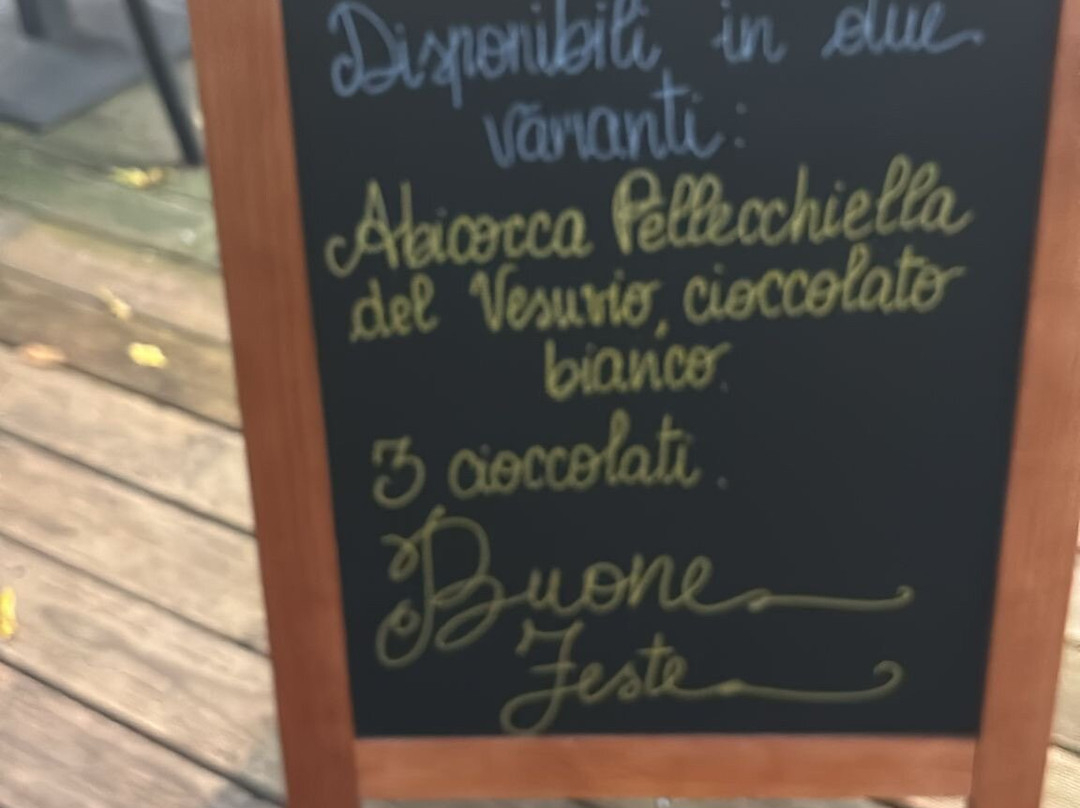 Disponibili in due
varianti:
Abicocca Pellecchiella
del Vesuvio, cioccolato
bianco.
3 cioccolati.
Buone
Feste